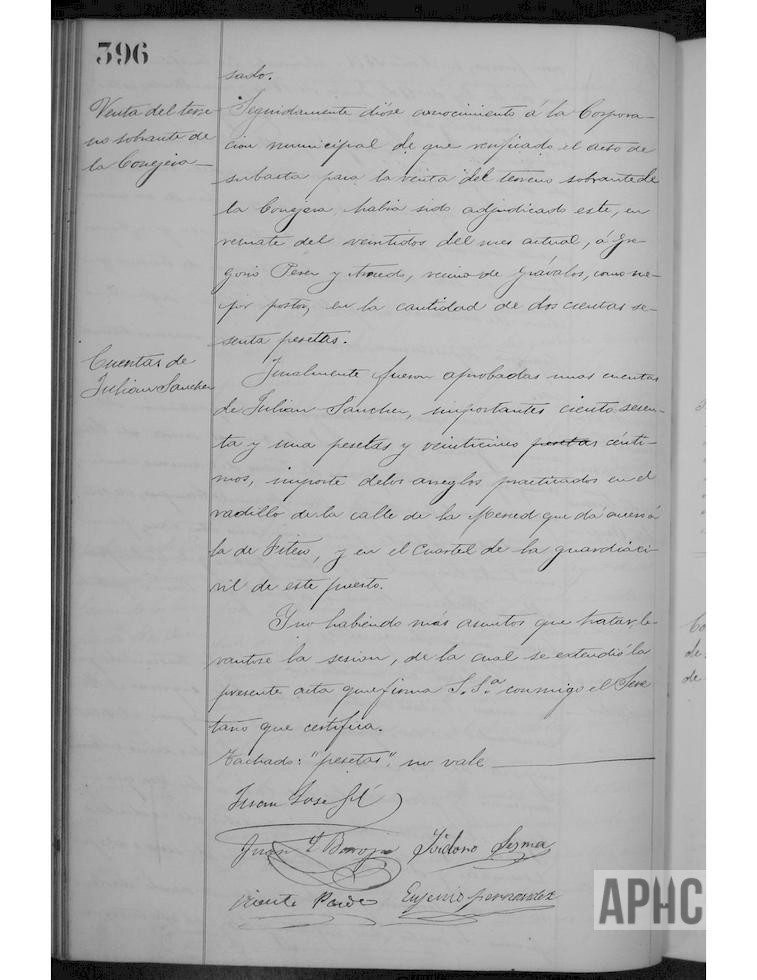 396
sado.
Venta del terre
no sobrante de
la Conejera
Seguidamente dióse conocimiento á la Corpora-
cion municipal de que verificado el acto de
subasta para la venta del terreno sobrante de
la Conejera había sido adjudicado este, en
remate del veintidos del mes actual, á Gre-
gorio Pérez y Arnedo, vecino de Grávalos, como me-
jor postor, en la cantidad de doscientas se-
senta pesetas.
Cuentas de
Julian Sanchez
Finalmente fueron aprobadas unas cuentas
de Julian Sanchez, importantes ciento sesen-
ta y una pesetas y veinticinco pesetas cénti-
mos, importe de los arreglos practicados en el
vadillo de la calle de la Merced que dá acceso á
la de Fitero, y en el Cuartel de la guardia ci-
vil de este puesto.
Y no habiendo más asuntos que tratar, le-
vantóse la sesion, de la cual se extendió la
presente acta que firma S.Sª conmigo el Secre
tario que certifica.
Tachado: "pesetas", no vale
Juan José Gil
Juan
Isidoro
Vicente
Eugenio Fernandez
APHC